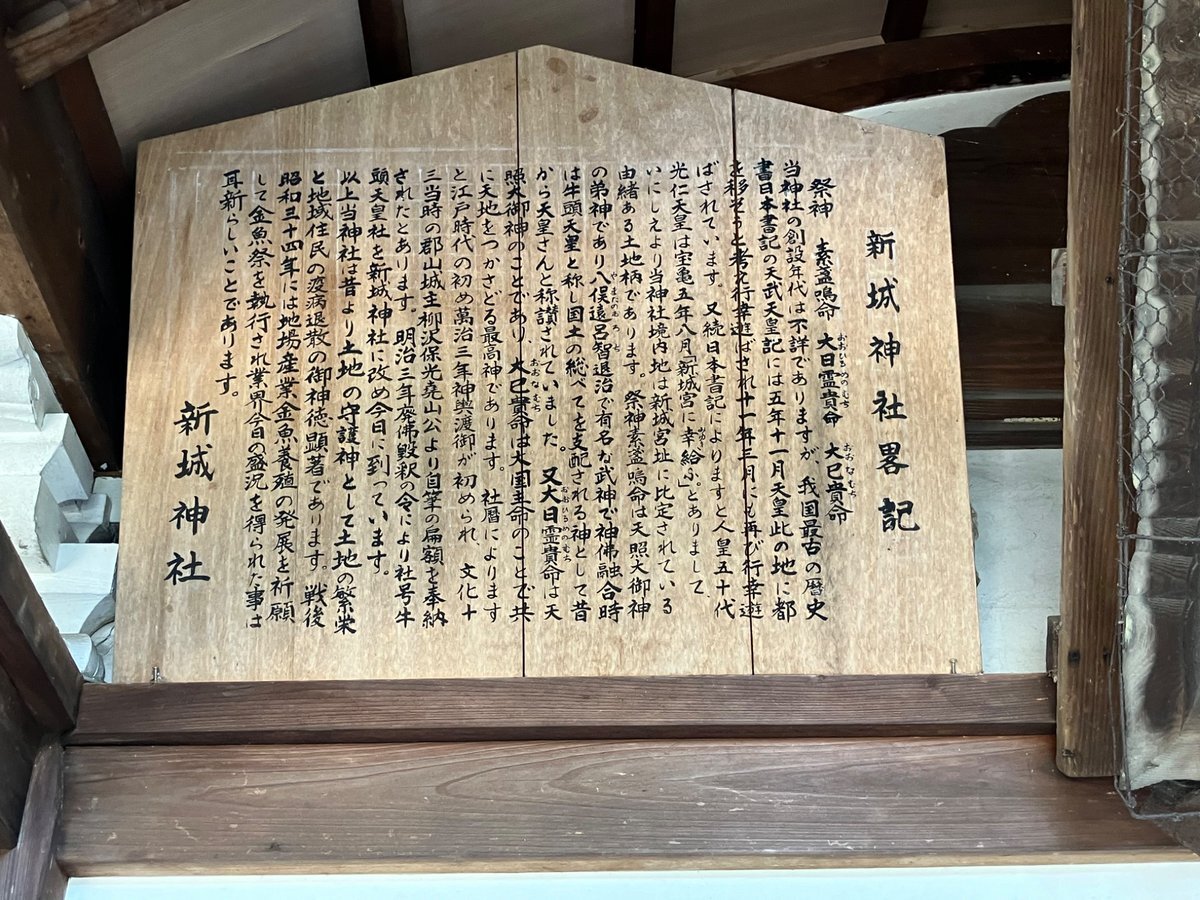 新城神社畧記
祭神　素盞嗚命　大日霊貴命　大巳貴命
当神社の創設年代は不詳でありますが、我国最古の暦史
書日本書記の天武天皇記には五年十一月天皇此の地に都
を移そうと考え行幸遊ばされ十一年三月にも再び行幸遊
ばされています。又続日本書記によりますと人皇五十代
光仁天皇は宝亀五年八月「新城宮に幸給ふ」とありまして、
いにしえより当神社境内地は新城宮址に比定されている
由緒ある土地柄であります。祭神素盞嗚命は天照大御神
の弟神であり八俣遠呂智退治で有名な武神で神佛融合時
は牛頭天皇と称し国土の総べてを支配される神として昔
から天皇さんと称讃されていました。又大日霊貴命は天
照大御神のことであり、大巳貴命は大国主命のことで共
に天地をつかさどる最高神であります。社暦によります
と江戸時代の初め萬治三年神輿渡御が初められ、文化十
三当時の郡山城主柳沢保光堯山公より自筆の扁額を奉納
されたとあります。明治三年廃佛毀釈の令により社号牛
頭天皇社を新城神社に改め今日に到っています。
以上当神社は昔より土地の守護神として土地の繁栄
と地域住民の疫病退散の御神徳顕著であります。戦後
昭和三十四年には地場産業金魚養殖の発展を祈願
して金魚祭を執行され業界今日の盛況を得られた事は
耳新らしいことであります。
新城神社